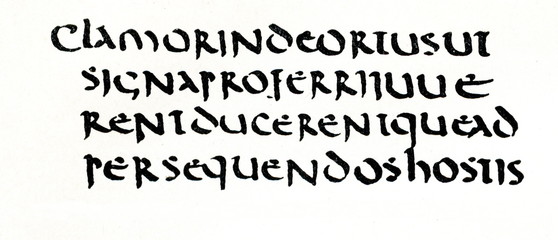 ClamorINdeORTUSUT
SIGNAPROFERRIIUUE
RENTdUCERENTqUEAd
PERSEqUENdOShOSTIS